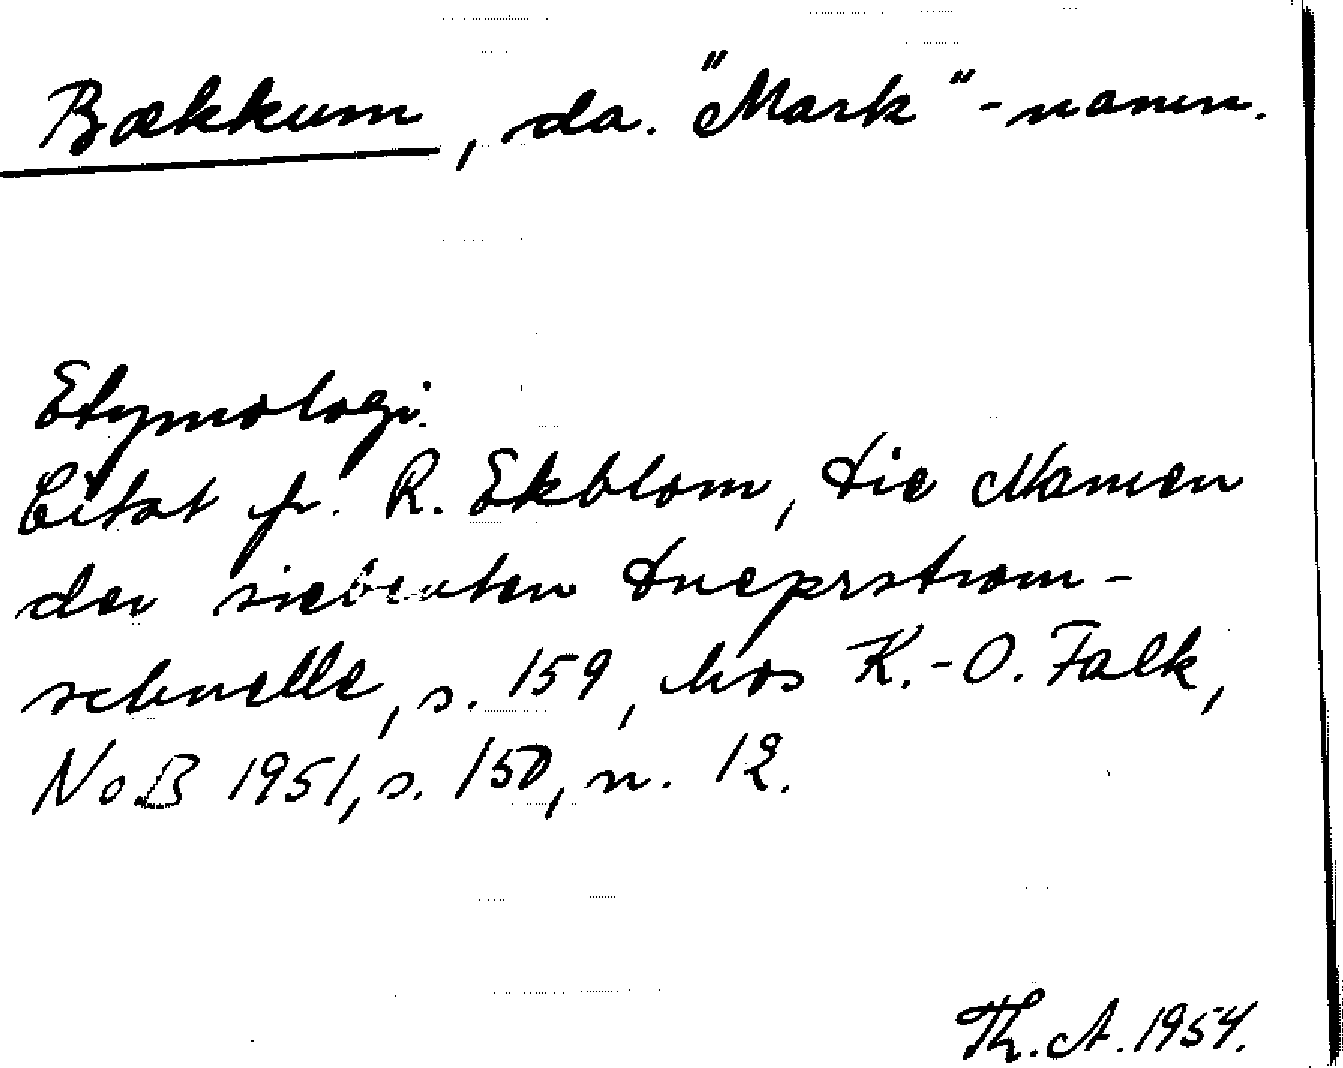 Bækkum, da. "Mark"-namn.
Etymologi.
Citat fr. R. Ekblom, Die Namen
der siebenten Dneprstrom-
schnelle, s. 159, hos K.-O. Falk,
NoB 1951, s. 150, n. 12.
Th. A. 1954.